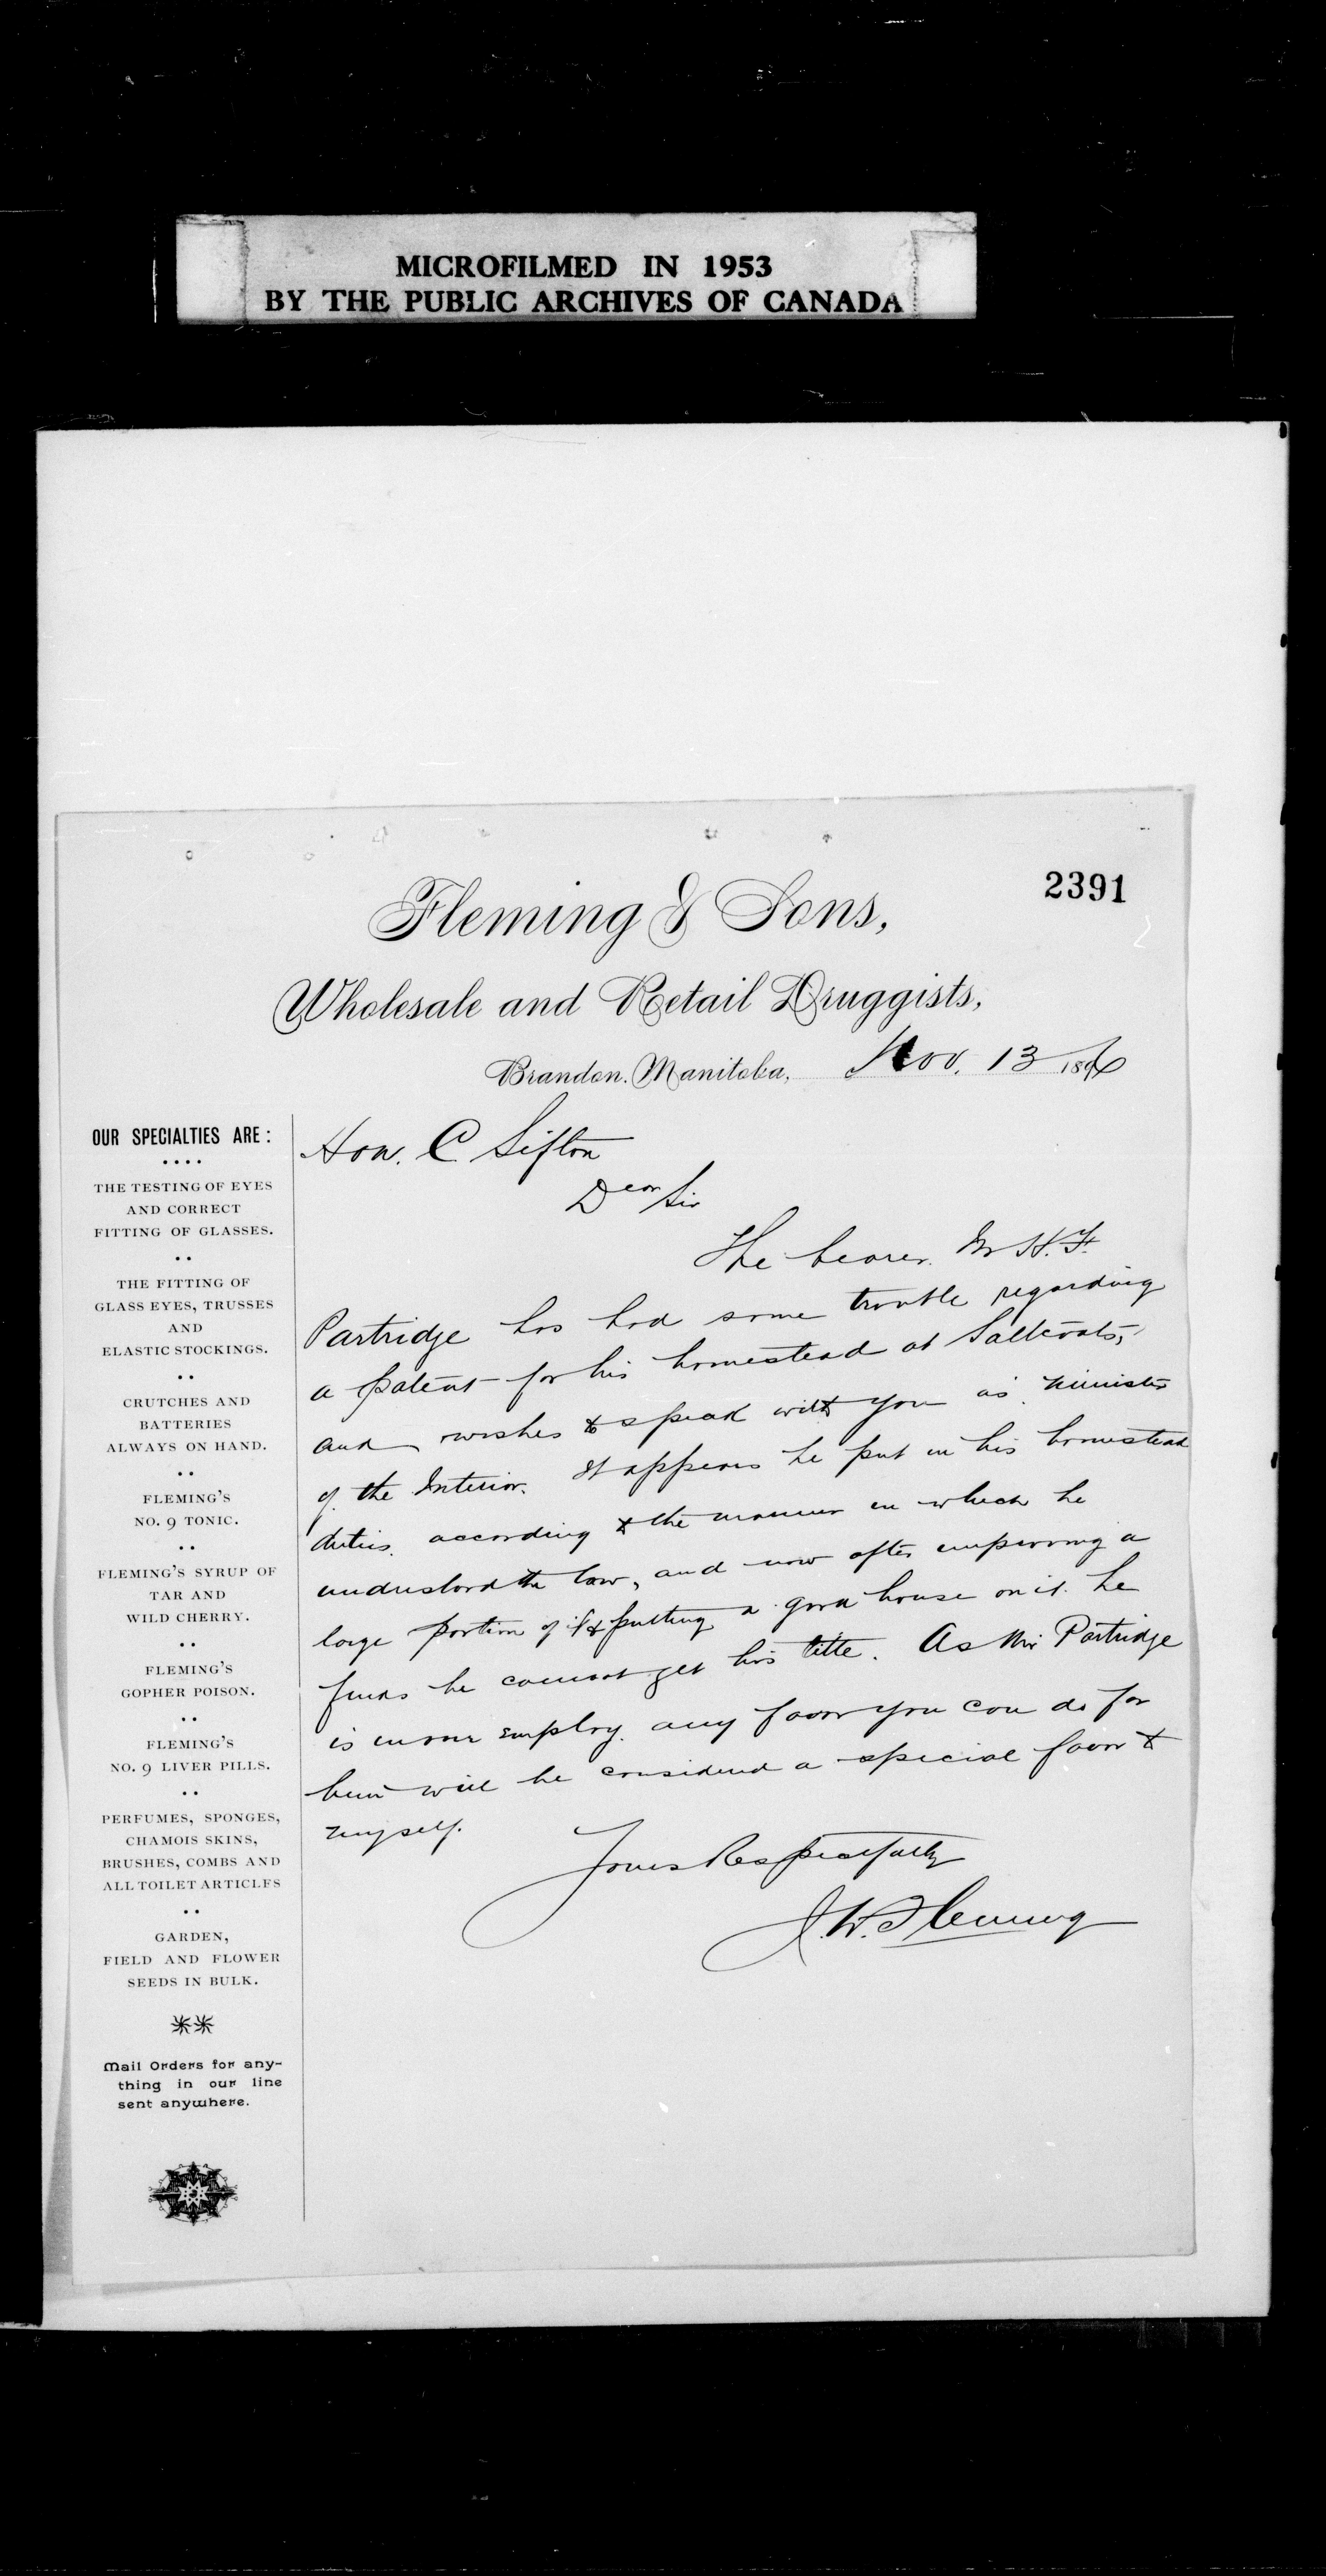 MICROFILMED IN 1953
BY THE PUBLIC ARCHIVES OF CANADA
2391
Fleming & Sons,
Wholesale and Retail Druggists,
Brandon, Manitoba, Nov. 13 1896
OUR SPECIALTIES ARE:
THE TESTING OF EYES
AND CORRECT
FITTING OF GLASSES.
THE FITTING OF
GLASS EYES, TRUSSES
AND
ELASTIC STOCKINGS.
CRUTCHES AND
BATTERIES
ALWAYS ON HAND.
FLEMING'S
NO. 9 TONIC.
FLEMING'S SYRUP OF
TAR AND
WILD CHERRY.
FLEMING'S
GOPHER POISON.
FLEMING'S
NO. 9 LIVER PILLS.
PERFUMES, SPONGES,
CHAMOIS SKINS,
BRUSHES, COMBS AND
ALL TOILET ARTICLES
GARDEN,
FIELD AND FLOWER
SEEDS IN BULK.
Mail Orders for any-
thing in our line
sent anywhere.
Hon. C Sifton
Dear Sir
The bearer Mr H. F.
Partridge has had some trouble regarding
a patent for his homestead at Saltcoats,
and wishes to speak with you as Minister
of the Interior. It appears he put in his homestead
duties according to the manner in which he
understood the law, and now after improving a
large portion of it & putting a good house on it he
finds he cannot get his title. As Mr Partridge
is in our employ any favor you can do for
him will be considered a special favor to
myself.
Yours Respectfully
J. W. Fleming